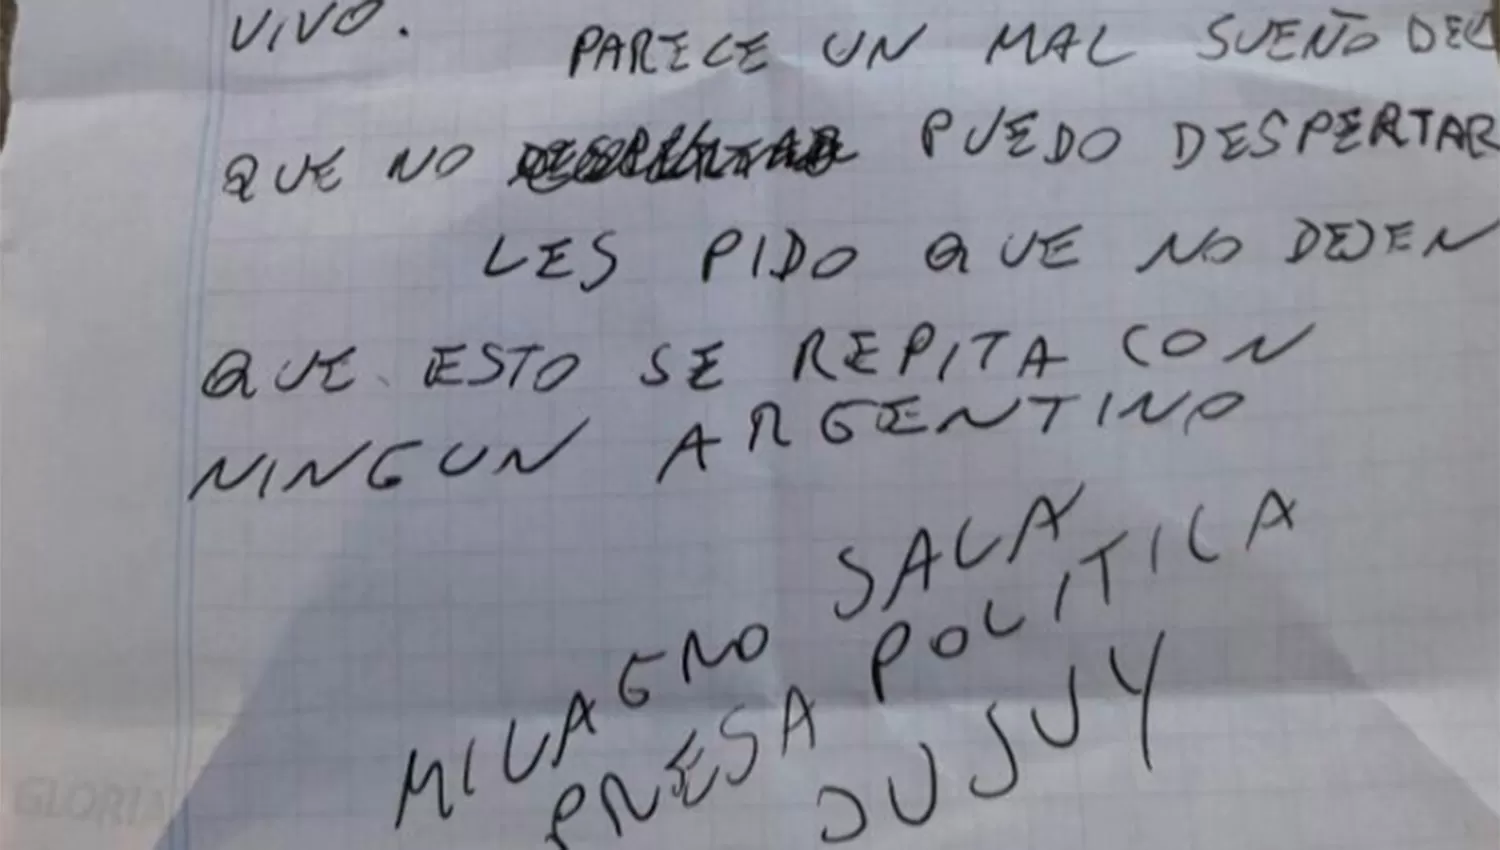 VIVO. PARECE UN MAL SUEÑO DEL
QUE NO PUEDO DESPERTAR
LES PIDO QUE NO DEJEN
QUE ESTO SE REPITA CON
NINGUN ARGENTINO
MILAGRO SALA
PRESA POLITICA
JUJUY
GLORIA